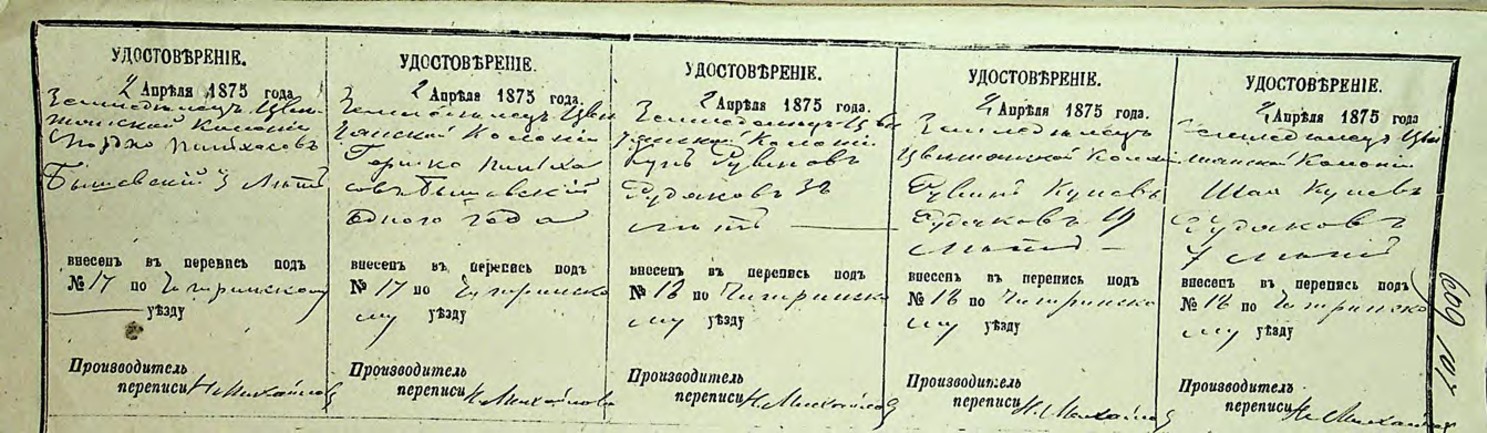 УДОСТОВѢРЕНІЕ.
2 Апрѣля 1875 года
Земледѣлецъ Цви-
танской Колоніи
Пинхасовъ
3 Лѣтъ
внесенъ въ перепись подъ
№ 17 по Чигиринскому
уѣзду
Производитель
переписи Н. Михайлов
УДОСТОВѢРЕНІЕ.
2 Апрѣля 1875 года.
Земледѣлецъ Цви
танской Колоніи
Гершко Пинха
совъ
одного года
внесенъ въ перепись подъ
№ 17 по Чигиринско
му уѣзду
Производитель
переписи Н. Михайлов
УДОСТОВѢРЕНІЕ.
2 Апрѣля 1875 года.
Земледѣлецъ Цви
танской Колоніи
Рувиновъ
Судаковъ 32
лѣтъ
внесенъ въ перепись подъ
№ 18 по Чигиринско
му уѣзду
Производитель
переписи Н. Михайлов
УДОСТОВѢРЕНІЕ.
2 Апрѣля 1875 года.
Земледѣлецъ
Цвитанской Колоніи
Рувинъ Куневъ
Судаковъ 9
лѣтъ
внесенъ въ перепись подъ
№ 18 по Чигиринско
му уѣзду
Производитель
переписи Н. Михайлов
УДОСТОВѢРЕНІЕ.
2 Апрѣля 1875 года
Земледѣлецъ Цви
танской Колоніи
Шая Куневъ
Судаковъ
7 лѣтъ
внесенъ въ перепись подъ
№ 18 по Чигиринско
му уѣзду
Производитель
переписи Н. Михайлов